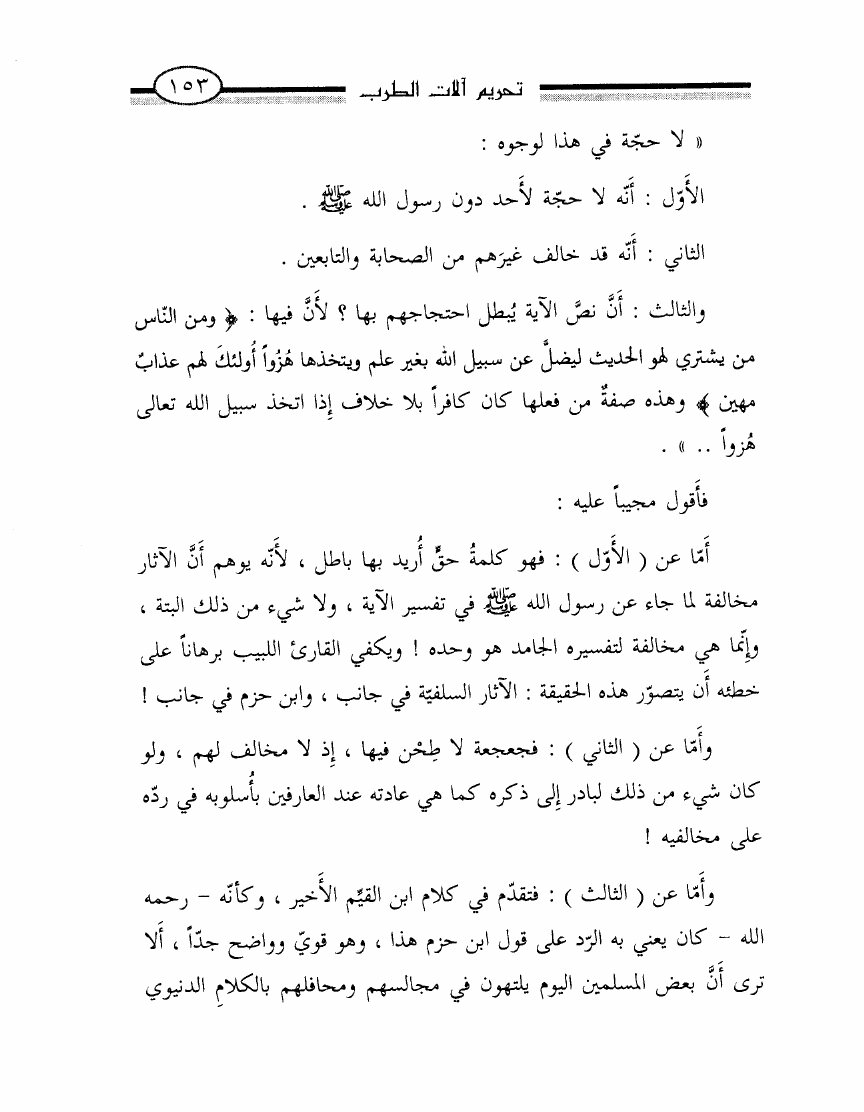 تحريم آلات الطرب ١٥٣
« لا حجّة في هذا لوجوه :
الأَوّل : أَنّه لا حجّة لأَحد دون رسول الله ﷺ .
الثاني : أَنّه قد خالف غيرَهم من الصحابة والتابعين .
والثالث : أَنَّ نصَّ الآية يُبطل احتجاجهم بها ؟ لأَنَّ فيها : ﴿ ومن النّاس
من يشتري لهو الحديث ليضلَّ عن سبيل الله بغير علم ويتخذها هُزُواً أُولئكَ لهم عذابٌ
مهين ﴾ وهذه صفةٌ من فعلها كان كافراً بلا خلاف إِذا اتخذ سبيل الله تعالى
هُزواً .. » .
فأَقول مجيباً عليه :
أَمّا عن ( الأَوّل ) : فهو كلمةُ حقٍّ أُريد بها باطل ، لأَنّه يوهم أَنَّ الآثار
مخالفة لما جاء عن رسول الله ﷺ في تفسير الآية ، ولا شيء من ذلك البتة ،
وإِنّما هي مخالفة لتفسيره الجامد هو وحده ! ويكفي القارئ اللبيب برهاناً على
خطئه أَن يتصوّر هذه الحقيقة : الآثار السلفيّة في جانب ، وابن حزم في جانب !
وأَمّا عن ( الثاني ) : فجعجعة لا طِحْن فيها ، إِذ لا مخالف لهم ، ولو
كان شيء من ذلك لبادر إِلى ذكره كما هي عادته عند العارفين بأُسلوبه في ردّه
على مخالفيه !
وأَمّا عن ( الثالث ) : فتقدّم في كلام ابن القيِّم الأَخير ، وكأنّه – رحمه
الله – كان يعني به الرّد على قول ابن حزم هذا ، وهو قويّ وواضح جدّاً ، أَلا
ترى أَنَّ بعض المسلمين اليوم يلتهون في مجالسهم ومحافلهم بالكلامِ الدنيوي